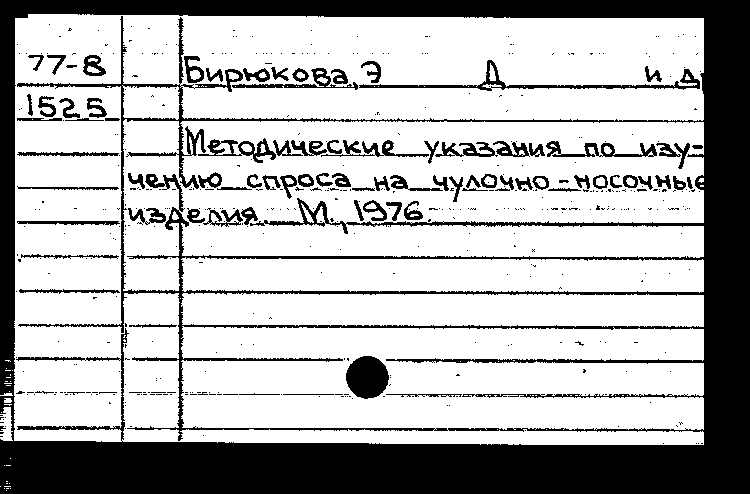 77-8 Бирюкова, Э Д и др
1525
Методические указания по изу-
чению спроса на чулочно-носочные
изделия. М., 1976.